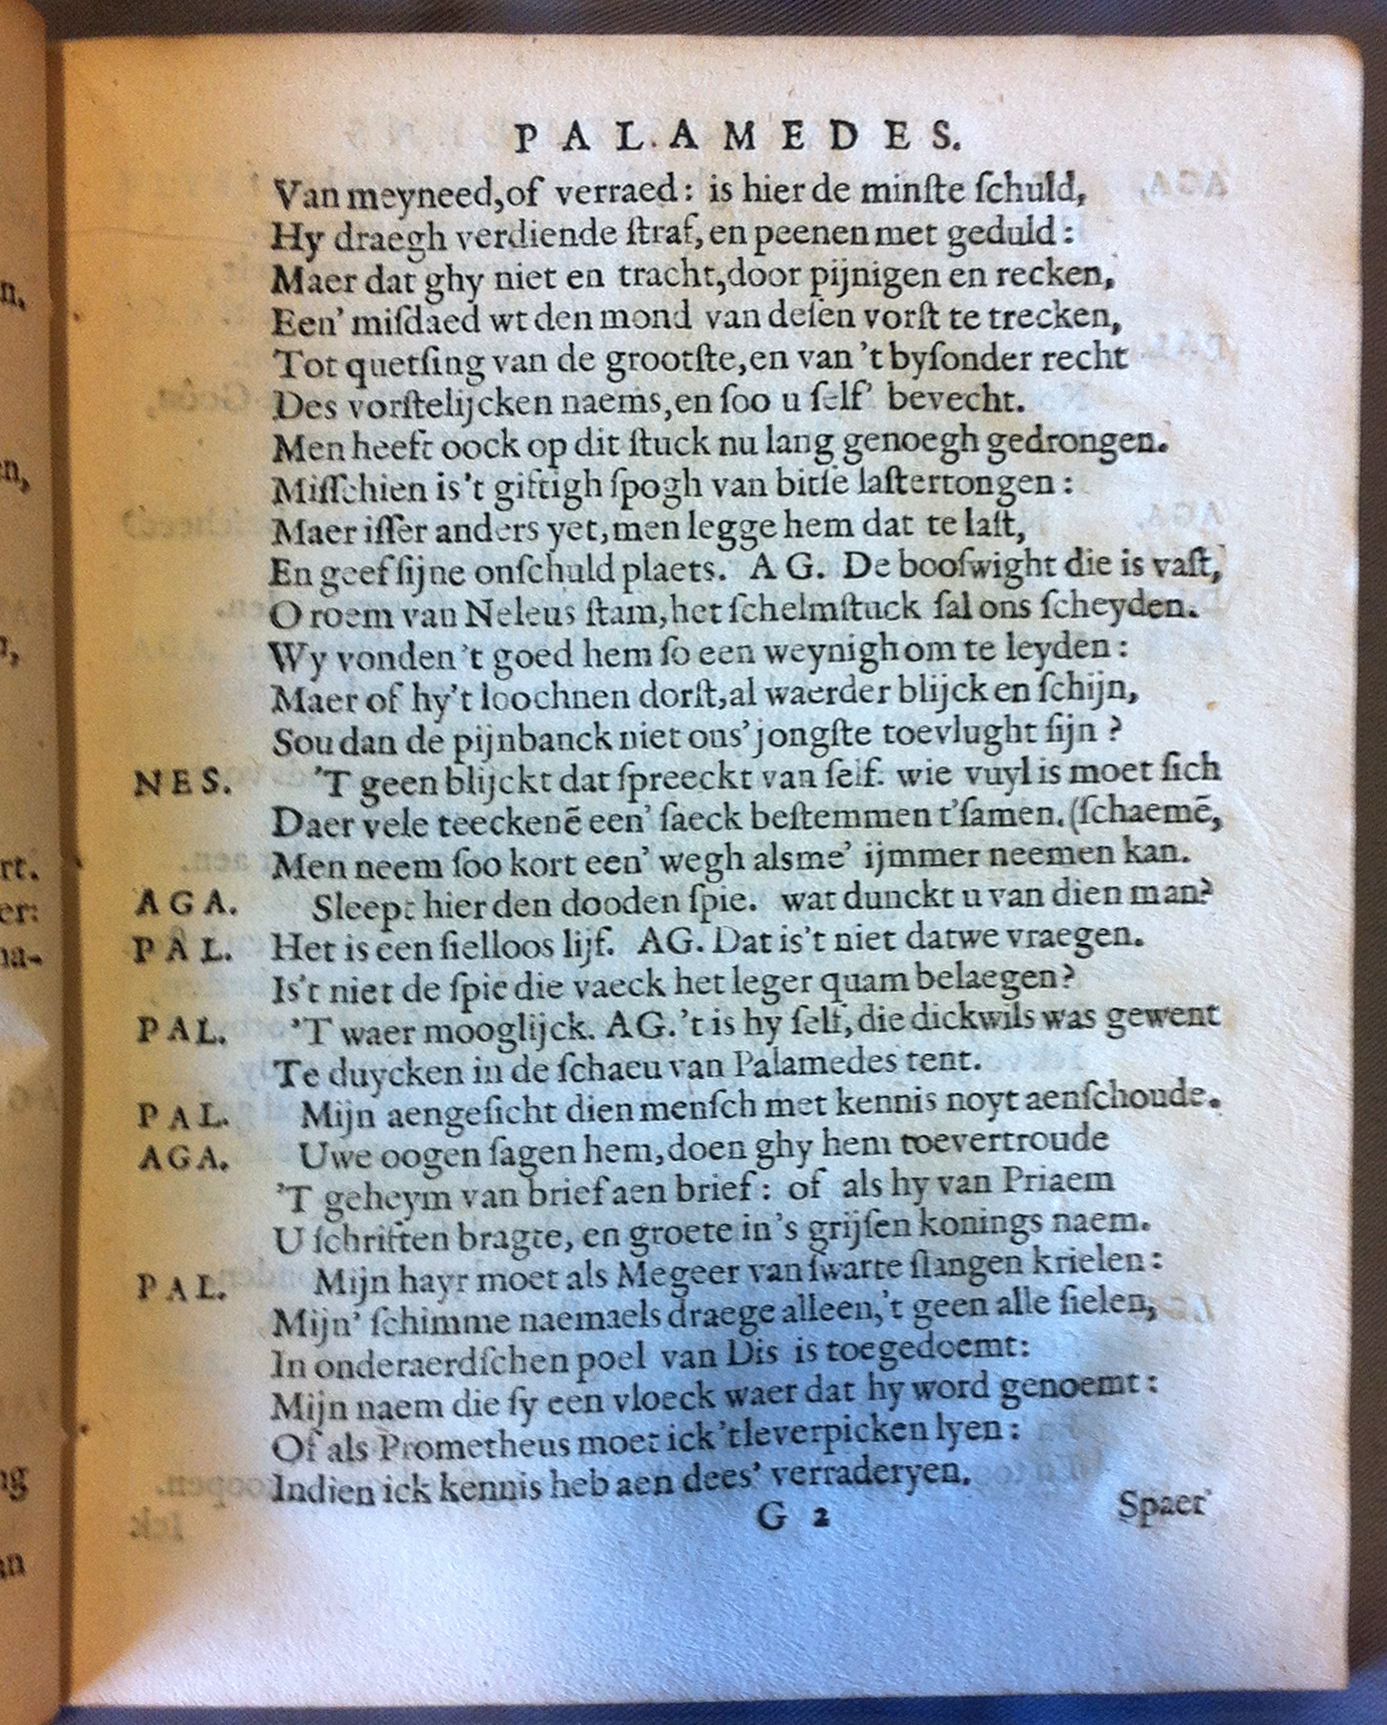 PALAMEDES.
Van meyneed, of verraed: is hier de minſte ſchuld,
Hy draegh verdiende ſtraf, en peenen met geduld:
Maer dat ghy niet en tracht, door pijnigen en recken,
Een' miſdaed wt den mond van deſen vorſt te trecken,
Tot quetſing van de grootſte, en van 't byſonder recht
Des vorſtelijcken naems, en ſoo u ſelf' bevecht.
Men heeft oock op dit ſtuck nu lang genoegh gedrongen.
Miſſchien is't giftigh ſpogh van bitſe laſtertongen:
Maer iſſer anders yet, men legge hem dat te laſt,
En geef ſijne onſchuld plaets. AG. De booſwight die is vaſt,
O roem van Neleus ſtam, het ſchelmſtuck ſal ons ſcheyden.
Wy vonden 't goed hem ſo een weynigh om te leyden:
Maer of hy't loochnen dorſt, al waerder blijck en ſchijn,
Sou dan de pijnbanck niet ons' jongſte toevlught ſijn?
NES. 'T geen blijckt dat ſpreeckt van ſelf. wie vuyl is moet ſich
Daer vele teeckenē een' ſaeck beſtemmen t'ſamen. (ſchaemē,
Men neem ſoo kort een' wegh alsme' ijmmer neemen kan.
AGA. Sleept hier den dooden ſpie. wat dunckt u van dien man?
PAL. Het is een ſielloos lijf. AG. Dat is't niet datwe vraegen.
Is't niet de ſpie die vaeck het leger quam belaegen?
PAL. 'T waer mooglijck. AG. 't is hy ſelf, die dickwils was gewent
Te duycken in de ſchaeu van Palamedes tent.
PAL. Mijn aengeſicht dien menſch met kennis noyt aenſchoude.
AGA. Uwe oogen ſagen hem, doen ghy hem toevertroude
'T geheym van brief aen brief: of als hy van Priaem
U ſchriften bragte, en groete in 's grijſen konings naem.
PAL. Mijn hayr moet als Megeer van ſwarte ſlangen krielen:
Mijn' ſchimme naemaels draege alleen, 't geen alle ſielen,
In onderaerdſchen poel van Dis is toegedoemt:
Mijn naem die ſy een vloeck waer dat hy word genoemt:
Of als Prometheus moet ick 't leverpicken lyen:
Indien ick kennis heb aen dees' verraderyen.
G 2 Spaer'